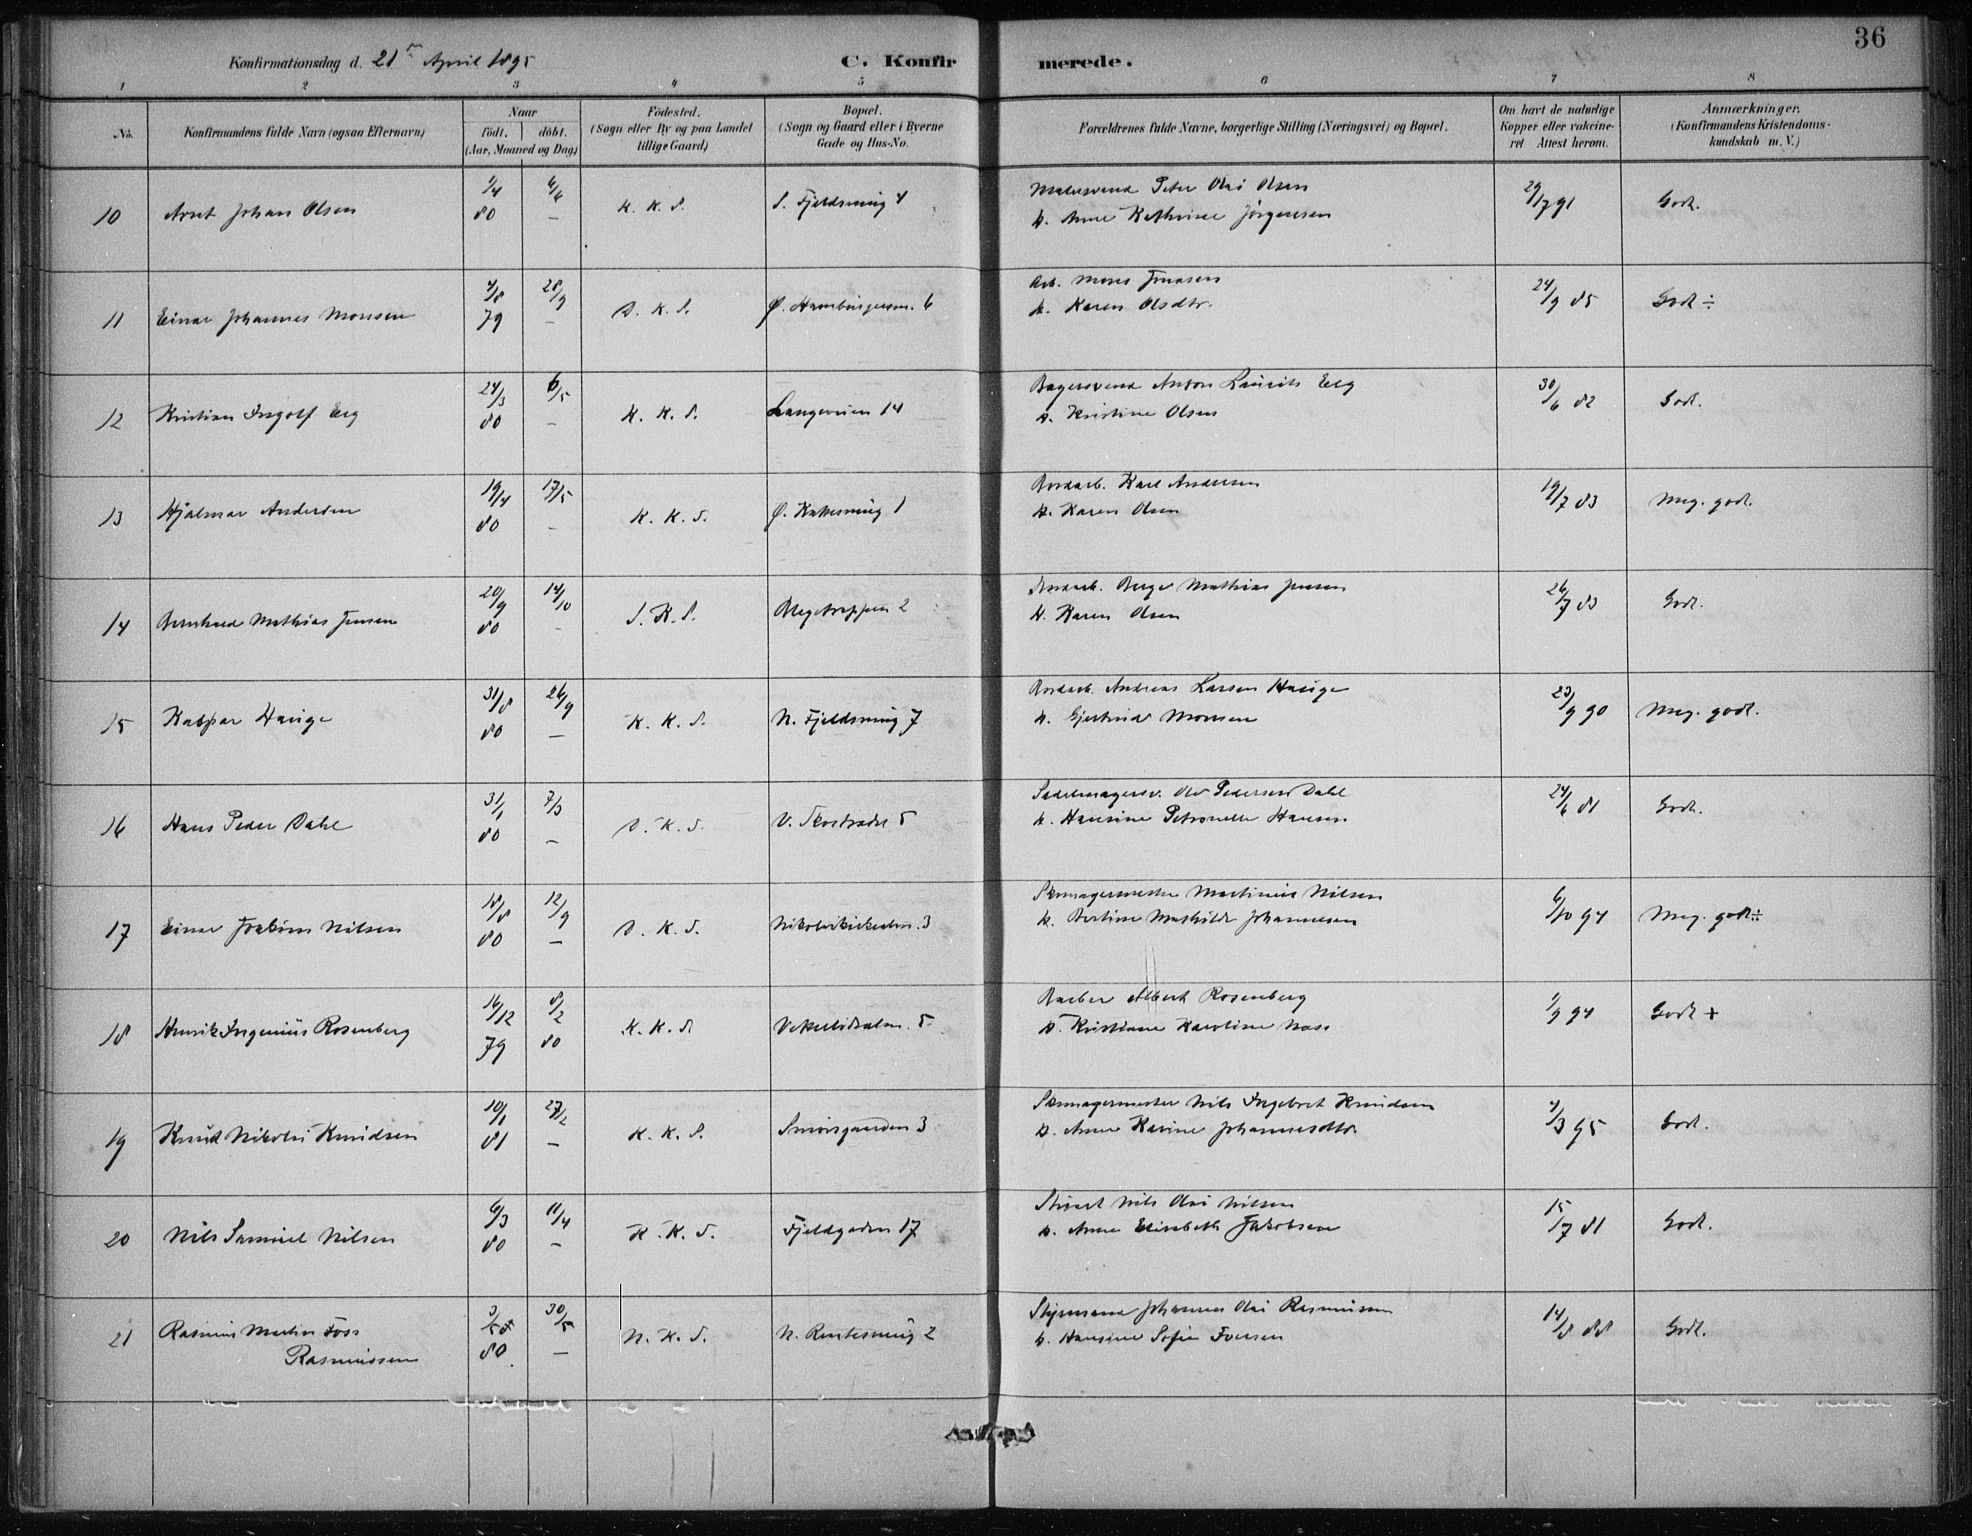 36
Konfirmationsdag d. 21 April 1895
C. Konfirmerede.
1 2 3 4 5 6 7 8
No.
Konfirmandens fulde Navn (ogsaa Efternavn)
Naar
födt. döbt.
(Aar, Maaned og Dag)
Födested.
(Sogn eller By og paa Landet
tillige Gaard)
Bopæl.
(Sogn og Gaard eller i Byerne
Gade og Hus-No.
Forældrenes fulde Navne, borgerlige Stilling (Næringsvei) og Bopæl.
Om havt de naturlige
Kopper eller vakcine-
ret Attest herom.
Anmærkninger.
(Konfirmandens Kristendoms-
kundskab m. V.)
10 Arnt Johan Olsen 1/4 80 6/6 — K. K. S. S. Fjeldsmug 4
Malersvend Peter Olai Olsen
h. Anne Kathrine Jörgensen
29/7 91 Godt.
11 Einar Johannes Monsen 4/8 79 28/9 — D. K. S. Ø. Hamburgersm. 6
Arb. Mons
h. Karen Olsdtr.
24/9 85 Godt ÷
12 Kristian Ingolf Eeg 24/3 80 6/5 — K. K. S. Langeveien 14
Bagersvend Anton Laurits Eeg
h. Kristine Olsen
30/6 82 Godt.
13 Hjalmar Andersen 19/4 80 17/5 — K. K. S. Ø. 1
Bordarb. Karl Andersen
h. Karen Olsen
19/7 83 Meg. godt.
14 Bernhard Mathias Jensen 20/9 80 14/10 — S. K. S. 2
Bordarb. Berge Mathias Jensen
h. Karen Olsen
26/7 83 Godt.
15 Kaspar Hauge 31/8 80 26/9 — K. K. S. N. Fjeldsmug 7
Bordarb. Andreas Larsen Hauge
h. Gjertrud Monsen
23/9 90 Meg. godt.
16 Hans Peder Dahl 31/1 80 7/3 — D. K. S. V. Skostrædet 5
Sadelmagersv. Ole Pedersen Dahl
h. Hansine Petronelle Hansen
24/6 81 Godt.
17 Einar Joakim Nilsen 18/8 80 12/9 — D. K. S. Nikolaikirkealm. 3
Skomagermester Martinus Nilsen
h. Bertine Mathilde Johannesen
6/10 94 Meg. godt ÷
18 Henrik Ingenius Rosenberg 16/12 79 8/2 80 K. K. S. Vetrlidsalm. 5.
Barber Albert Rosenberg
h. Kristiane Karoline Næss
1/9 94 Godt +
19 Knud Nikolai Knudsen 10/1 81 27/2 — K. K. S. Smörsgaarden 3
Skomagermester Nils Ingebret Knudsen
h. Anne Karine Johannesdtr.
4/3 95 Godt.
20 Nils Samuel Nilsen 6/3 80 11/4 — K. K. S. Fjeldgaden 17
Stuert Nils Olai Nilsen
h. Anne Elisabeth Jakobsen
15/7 81 Godt.
21 Rasmus Martin Foss
Rasmussen
80 30/5 — N. K. S. N. 2
Styrmand Johannes Olai Rasmussen
h. Hansine Sofie Iversen
14/8 88 Godt.